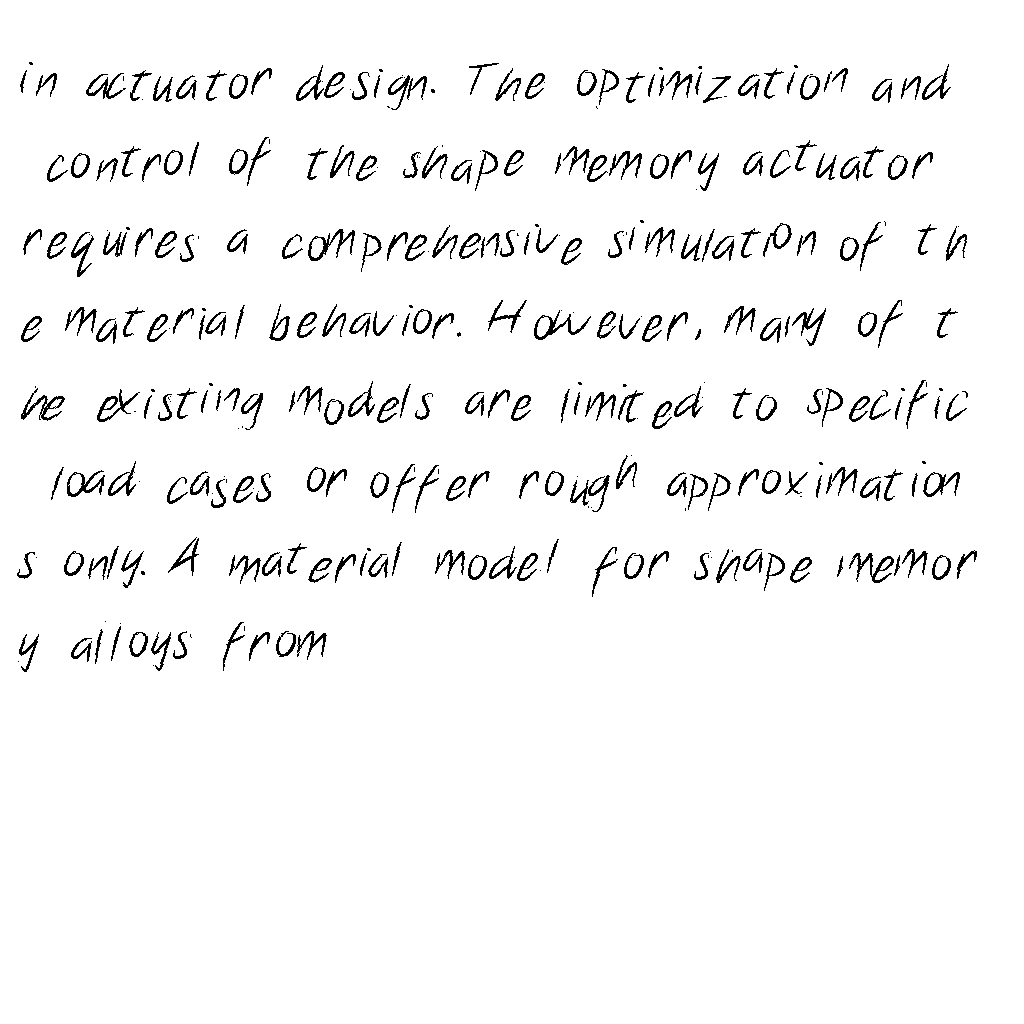 in actuator design. The optimization and
control of the shape memory actuator
requires a comprehensive simulation of th
e material behavior. However, many of t
he existing models are limited to specific
load cases or offer rough approximation
s only. A material model for shape memor
y alloys from